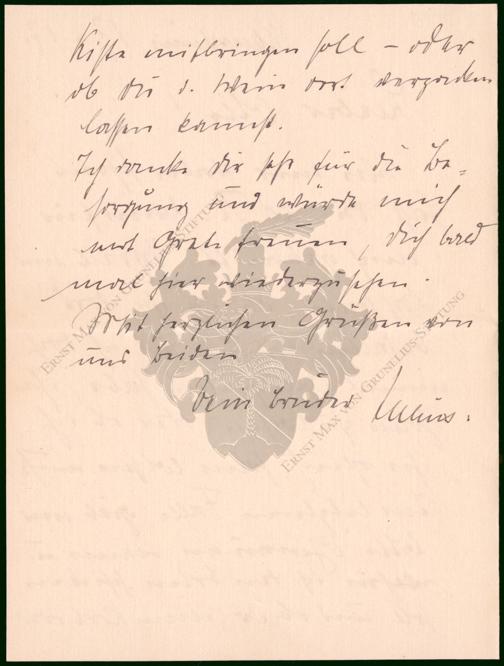 Kiste mitbringen soll – oder
ob Du d. Wein dort verpacken
lassen kannst.
Ich danke Dir sehr für die Be=
sorgung und würde mich
mit Grete freuen, Dich bald
mal hier wiederzusehen.
Mit herzlichen Grüßen von
uns beiden
Dein Bruder
ERNST MAX VON GRUNELIUS-STIFTUNG
ERNST MAX VON GRUNELIUS-STIFTUNG